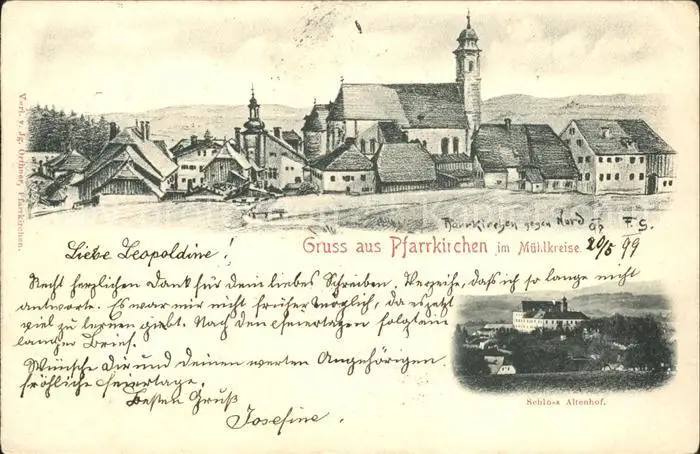 Pfarrkirchen gegen Nord
F. G.
Gruss aus Pfarrkirchen im Mühlkreise. 20/5 99
Liebe Leopoldine!
Recht herzlichen Dank für dein liebes Schreiben. Verzeihe, daß ich so lange nicht
antworte. Es war mir nicht früher möglich, da es jetzt
viel zu lernen giebt. Nach den Feiertagen folgt ein
langer Brief.
Wünsche Dir und deinen werten Angehörigen
fröhliche Feiertage.
Besten Gruß
Josefine.
Schloss Altenhof.
Verl. v. Jg. Ortner, Pfarrkirchen.